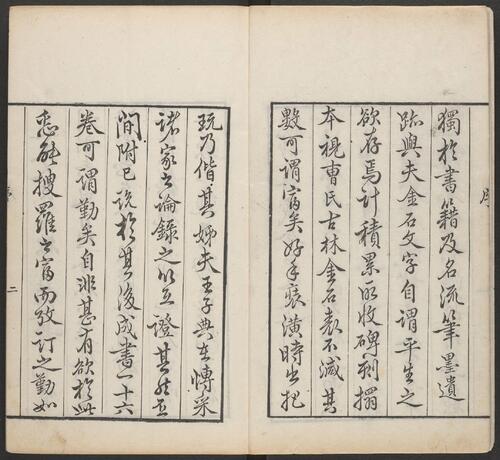 序
獨於書籍及名流筆墨遺
跡與夫金石文字自謂平生之
欲存焉計積累所收碑刻搨
本視曹氏古林金石表不減其
數可謂富矣好手裝潢時出把
玩乃偕其姊夫王子典在慱采
諸家之論錄之以互證其
間附已說於其後成書一十六
卷可謂勤矣自非甚有欲於此
悉能搜羅之富而攷訂之勤如
二